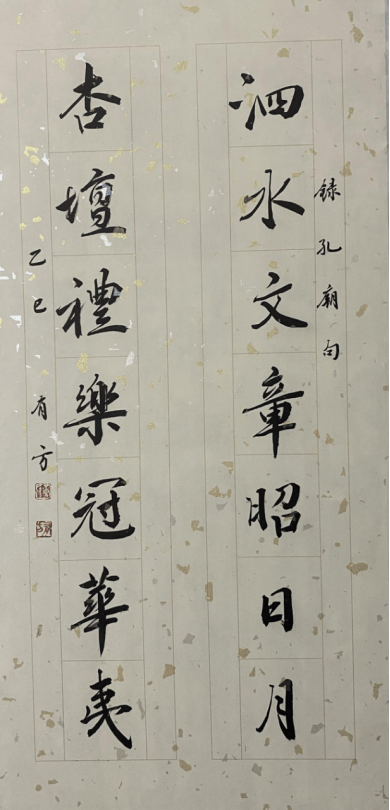 錄孔廟句
泗水文章昭日月
杏壇禮樂冠華夷
乙巳 有方